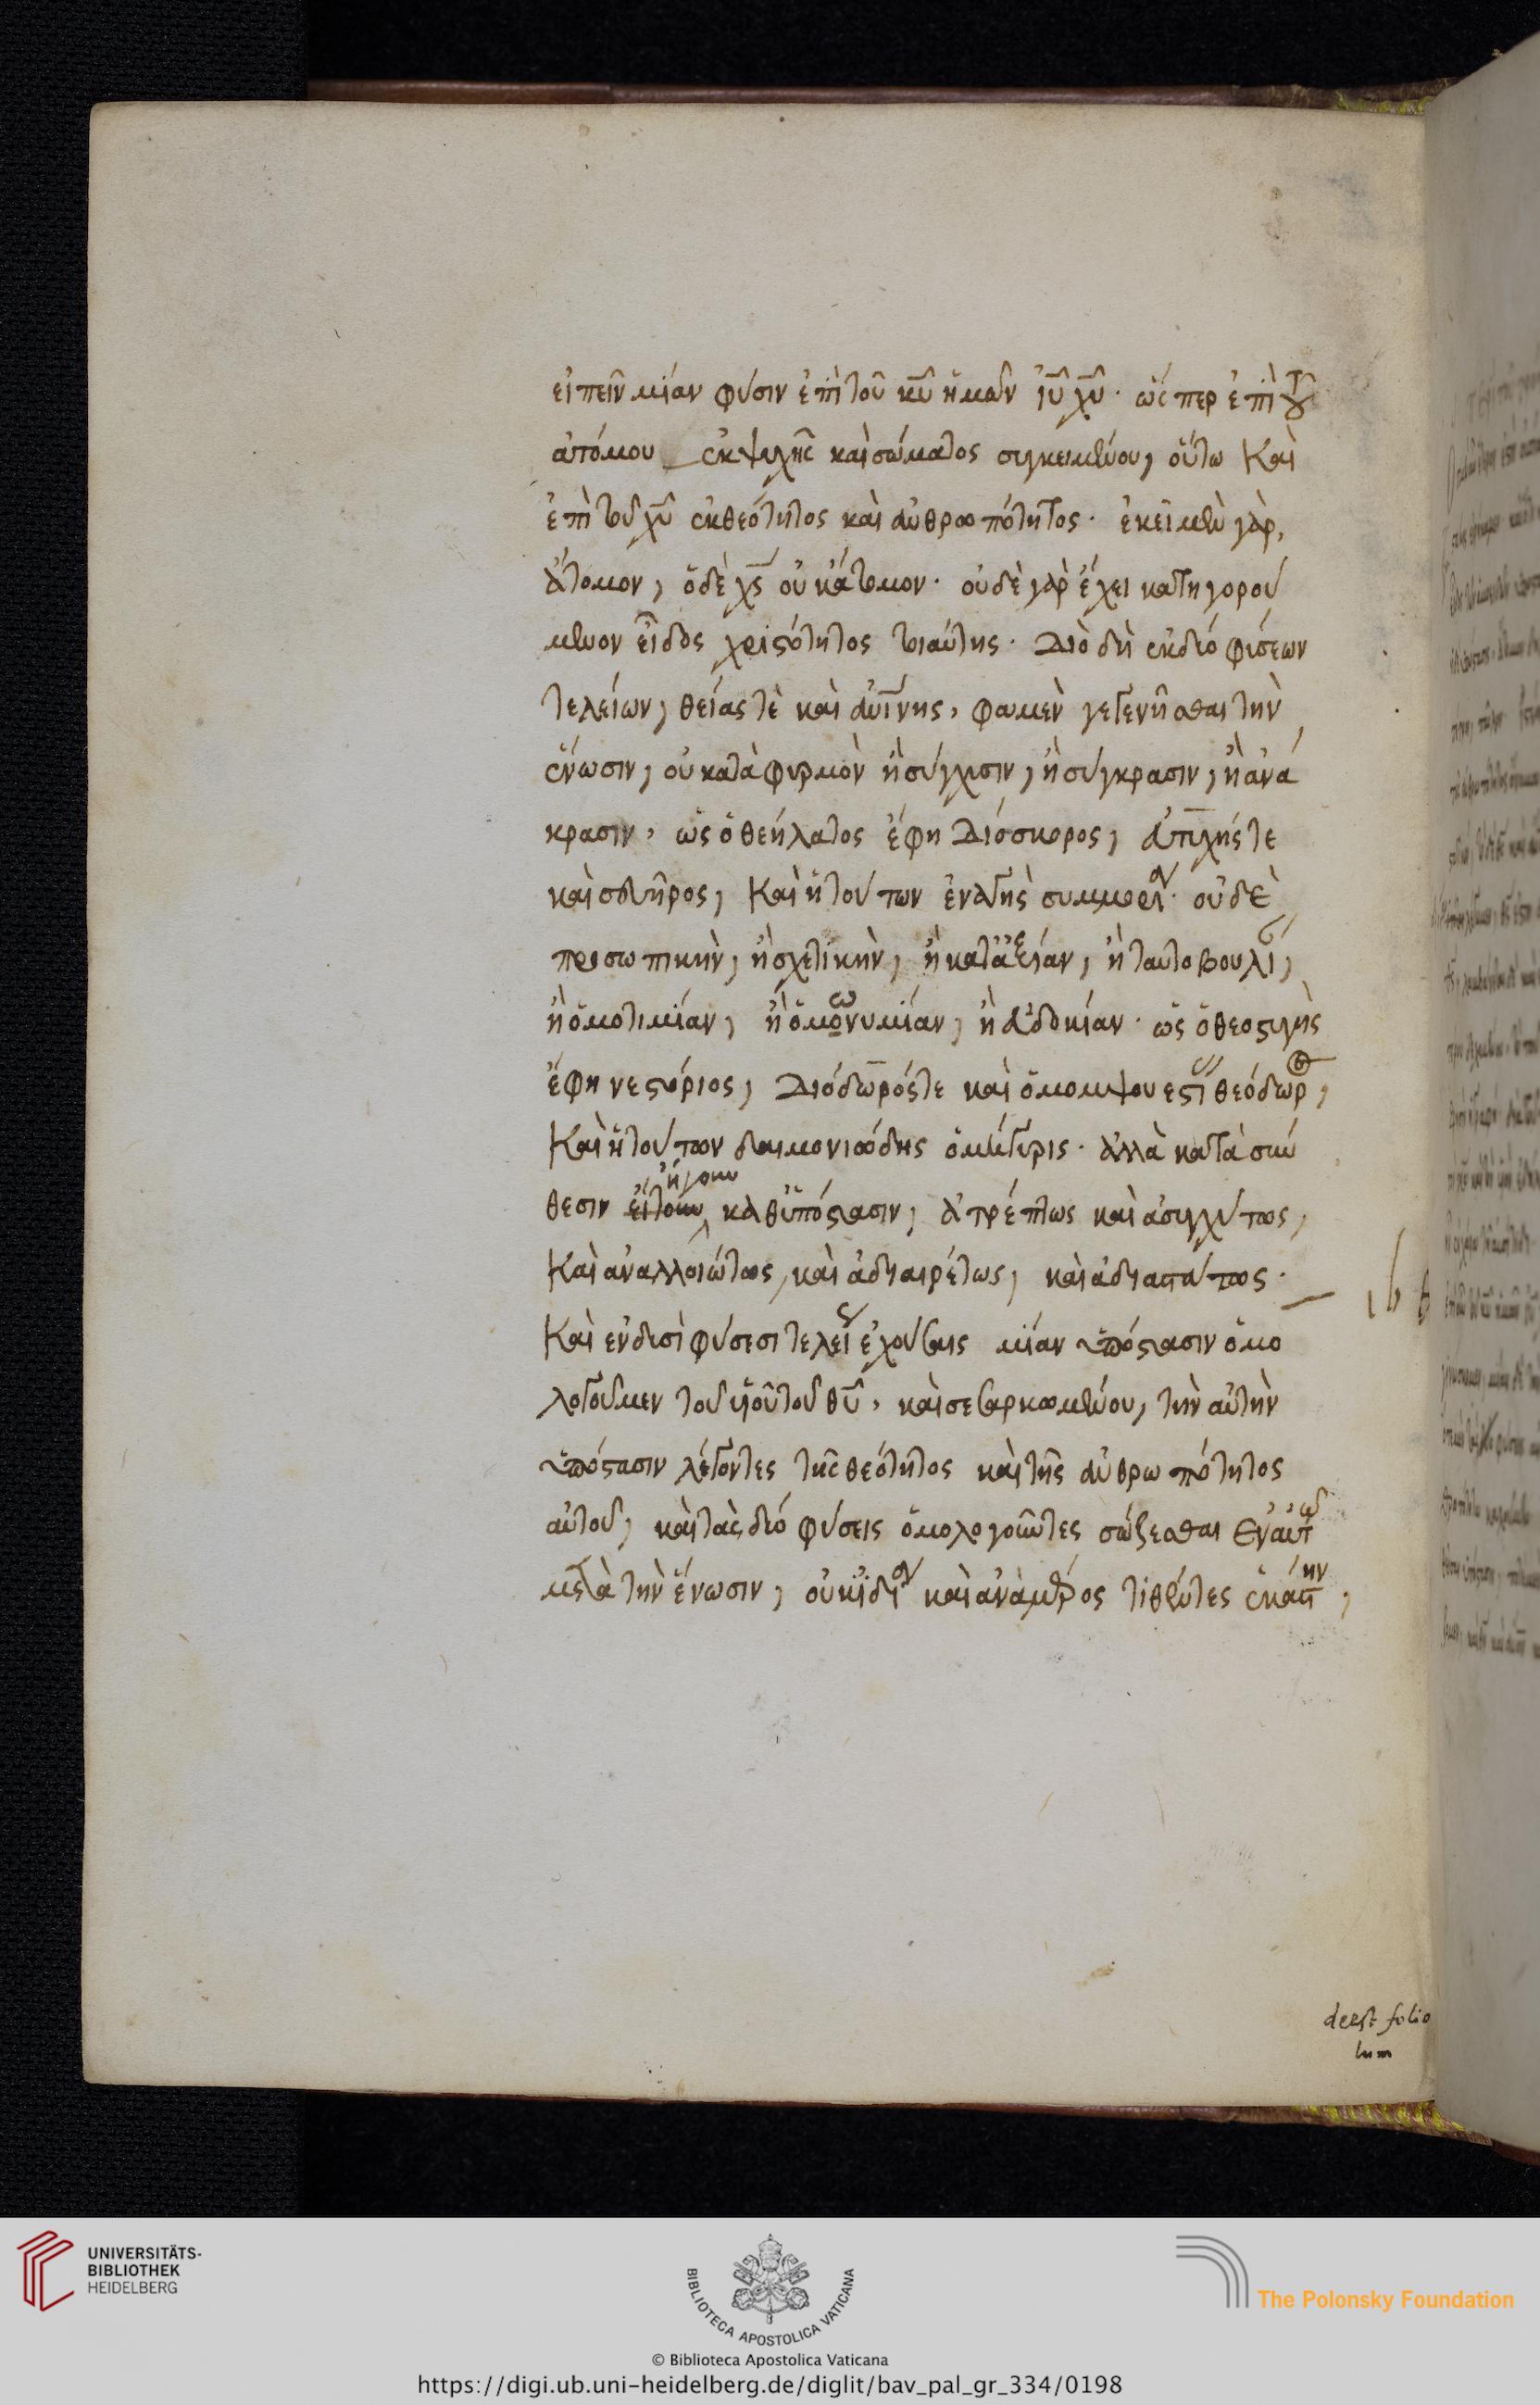 εἰπεῖν μίαν φύσιν ἐπὶ τοῦ κυ ἡμῶν ἰυ χυ· ὥσπερ ἐπὶ τοῦ
ἀτόμου ἐκ ψυχῆς καὶ σώματος συγκειμένου, οὕτω καὶ
ἐπὶ τοῦ χυ ἐκ θεότητος καὶ ἀνθρωπότητος· ἐκεῖ μὲν γὰρ,
ἄτομον, ὁ δὲ χς οὐκ ἄτομον· οὐδὲ γὰρ ἔχει κατηγορού
μενον εἶδος χριστότητος τοιαύτης· Διὸ δὴ ἐκ δύο φύσεων
τελείων, θείας τὲ καὶ ἀνίνης, φαμὲν γεγενῆσθαι τὴν
ἕνωσιν, οὐ κατὰ φυρμὸν ἢ σύγχυσιν, ἢ σύγκρασιν, ἢ ἀνά
κρασιν, ὡς ὁ θεήλατος ἔφη Διόσκορος, εὐτυχής τε
καὶ σευῆρος, καὶ ἡ τούτων ἐναγὴς συμμορία· οὐδὲ
προσωπικὴν, ἢ σχετικὴν, ἢ κατ' ἀξίαν, ἢ ταυτοβουλί,
ἢ ὁμοτιμίαν, ἢ ὁμωνυμίαν, ἢ εὐδοκίαν· ὡς ὁ θεοστυγὴς
ἔφη νεστόριος, Διόδωρός τε καὶ ὁ μομψουεστί θεόδωρ,
καὶ ἡ τούτων δαιμονιώδης ὁμήγυρις· ἀλλὰ κατὰ σύν
θεσιν εἴτουν ἤγουν καθ' ὑπόστασιν, ἀτρέπτως καὶ ἀσυγχύτως,
καὶ ἀναλλοιώτως, καὶ ἀδιαιρέτως, καὶ ἀδιασπάτως·
καὶ ἐν δυσὶ φύσεσι τελείως ἐχούσαις μίαν ὑπόστασιν ὁμο
λογοῦμεν τοῦ υἱοῦ τοῦ θυ, καὶ σεσαρκωμένου, τὴν αὐτὴν
ὑπόστασιν λέγοντες τῆς θεότητος καὶ τῆς ἀνθρωπότητος
αὐτοῦ, καὶ τὰς δύο φύσεις ὁμολογοῦντες σώζεσθαι ἐν αὐτῶ
μετὰ τὴν ἕνωσιν, οὐκ ἰδίαν καὶ ἀνὰ μέρος τιθέντες ἑκάστην,
deest folio
lum
UNIVERSITÄTS-
BIBLIOTHEK
HEIDELBERG
BIBLIOTECA APOSTOLICA VATICANA
The Polonsky Foundation
© Biblioteca Apostolica Vaticana
https://digi.ub.uni-heidelberg.de/diglit/bav_pal_gr_334/0198